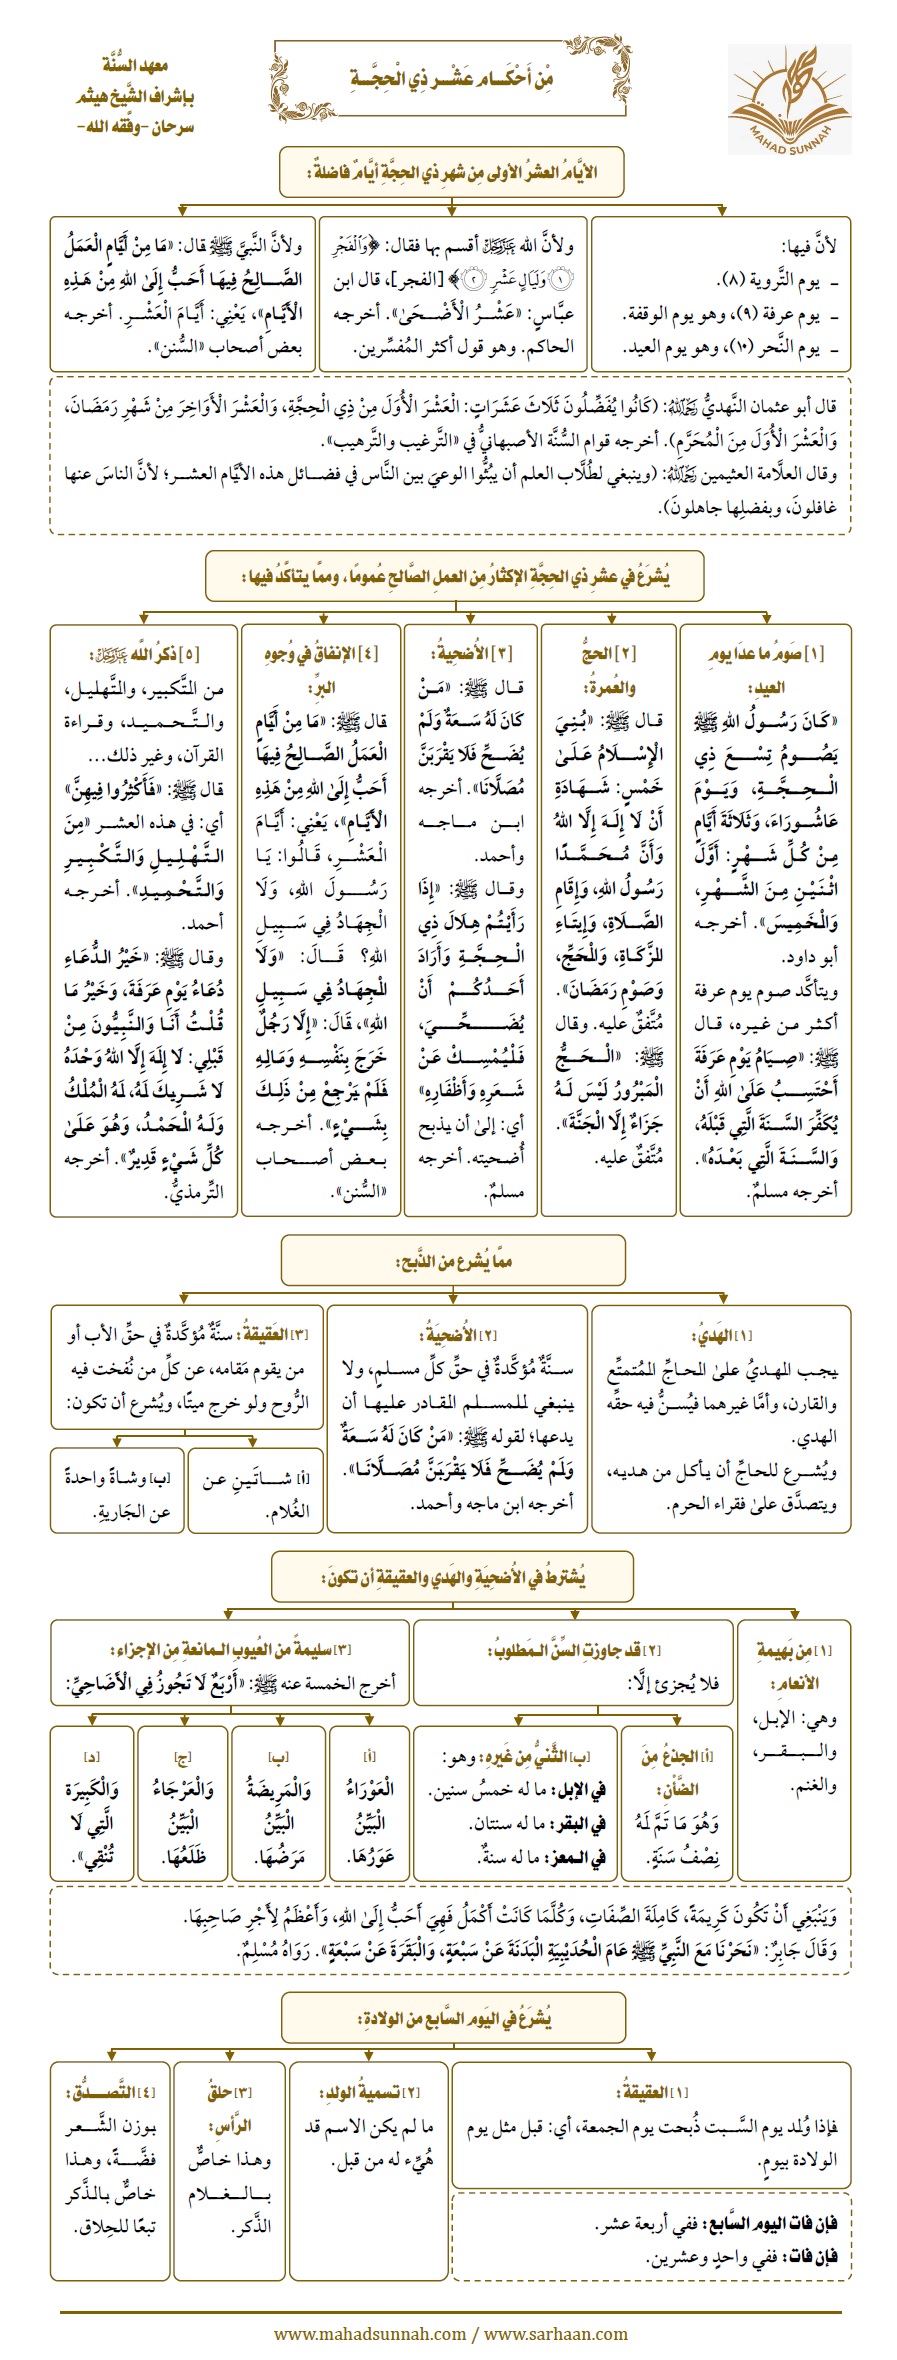 معهد السُّنَّة
بإشراف الشَّيخ هيثم
سرحان -وفَّقه الله-
مْن أَحْكَـــام عَشْـــر ذِي الْحِجَّـــةِ
MAHAD SUNNAH
الأيَّامُ العشرُ الأولى مِن شهرِ ذي الحِجَّةِ أيَّامٌ فاضلةٌ:
لأنَّ فيها:
ـ يوم التَّروية (٨).
ـ يوم عرفة (٩)، وهو يوم الوقفة.
ـ يوم النَّحر (١٠)، وهو يوم العيد.
ولأنَّ الله ﷻ أقسم بها فقال: ﴿وَٱلۡفَجۡرِ
١ وَلَيَالٍ عَشۡرٖ ٢﴾ [الفجر]، قال ابن
عبَّاس: «عَشْـرُ الْأَضْـحَىٰ». أخرجه
الحاكم. وهو قول أكثر المُفسِّرين.
ولأنَّ النَّبيَّ ﷺ قال: «مَا مِنْ أَيَّامٍ الْعَمَلُ
الصَّـــالِحُ فِيهَـا أَحَبُّ إِلَىٰ اللهِ مِنْ هَذِهِ
الْأَيَّامِ»، يَعْنِي: أَيَّـامَ الْعَشْـرِ. أخرجـه
بعض أصحاب «السُّنن».
قال أبو عثمان النَّهديُّ رَحِمَهُ اللَّهُ: (كَانُوا يُفَضِّلُونَ ثَلَاثَ عَشَرَاتٍ: الْعَشْرَ الْأُوَلَ مِنْ ذِي الْحِجَّةِ، وَالْعَشْرَ الْأَوَاخِرَ مِنْ شَهْرِ رَمَضَانَ،
وَالْعَشْرَ الْأُوَلَ مِنَ الْمُحَرَّمِ). أخرجه قوام السُّنَّة الأصبهانيُّ في «التَّرغيب والتَّرهيب».
وقال العلَّامة العثيمين رَحِمَهُ اللَّهُ: (وينبغي لطُلَّاب العلم أن يبُثُّوا الوعيَ بين النَّاس في فضـائل هذه الأيَّام العشـر؛ لأنَّ الناسَ عنها
غافلونَ، وبفضلِها جاهلونَ).
يُشرَعُ في عشرِ ذي الحِجَّةِ الإكثارُ مِن العملِ الصَّالحِ عُمومًا، وممَّا يتأكَّدُ فيها:
[١] صَومُ ما عدَا يومِ
العيدِ:
«كَـانَ رَسُـــولُ اللهِ ﷺ
يَصُـــومُ تِسْـــعَ ذِي
الْـحِـجَّـةِ، وَيَـوْمَ
عَاشُـورَاءَ، وَثَلَاثَةَ أَيَّامٍ
مِنْ كُـلِّ شَـــهْرٍ: أَوَّلَ
اثْـنَـيْـنِ مِـنَ الشَّـــهْرِ،
وَالْخَمِيسَ». أخرجـه
أبو داود.
ويتأكَّد صوم يوم عرفة
أكثر من غيـره، قـال
ﷺ: «صِـيَامُ يَوْمِ عَرَفَةَ
أَحْتَسِـبُ عَلَىٰ اللهِ أَنْ
يُكَفِّرَ السَّـنَةَ الَّتِي قَبْلَهُ،
وَالسَّـنَـةَ الَّتِي بَعْـدَهُ».
أخرجه مسلمٌ.
[٢] الحجُّ
والعُمرةُ:
قـال ﷺ: «بُـنِـيَ
الْإِسْـلَامُ عَـلَـىٰ
خَمْسٍ: شَـهَـادَةِ
أَنْ لَا إِلَـهَ إِلَّا اللهُ
وَأَنَّ مُـحَـمَّــدًا
رَسُولُ اللهِ، وَإِقَامِ
الصَّـلَاةِ، وَإِيتَـاءِ
الزَّكَـاةِ، وَالْحَجِّ،
وَصَوْمِ رَمَضَانَ».
مُتَّفقٌ عليه. وقال
ﷺ: «الْـحَـجُّ
الْمَبْرُورُ لَيْسَ لَـهُ
جَزَاءٌ إِلَّا الْجَنَّةَ».
مُتَّفقٌ عليه.
[٣] الأُضحيَةُ:
قـال ﷺ: «مَـنْ
كَانَ لَهُ سَعَةٌ وَلَمْ
يُضَـحِّ فَلَا يَقْرَبَنَّ
مُصَلَّانَا». أخرجه
ابـن مـاجـه
وأحمد.
وقـال ﷺ: «إِذَا
رَأَيْتُمْ هِلَالَ ذِي
الْـحِـجَّـةِ وَأَرَادَ
أَحَـدُكُـمْ أَنْ
يُضَـــحِّـــيَ،
فَـلْيُمْسِـــكْ عَنْ
شَـعَرِهِ وَأَظْفَارِهِ»
أي: إلىٰ أن يذبح
أُضحيته. أخرجه
مسلمٌ.
[٤] الإنفاقُ في وُجوهِ
البِرِّ:
قال ﷺ: «مَا مِنْ أَيَّامٍ
الْعَمَلُ الصَّـالِحُ فِيهَا
أَحَبُّ إِلَىٰ اللهِ مِنْ هَذِهِ
الْأَيَّامِ»، يَعْنِي: أَيَّـامَ
الْعَشْـرِ، قَـالُوا: يَـا
رَسُـــولَ اللهِ، وَلَا
الْجِهَادُ فِي سَـبِيـلِ
اللهِ؟ قَــالَ: «وَلَا
الْجِهَادُ فِي سَـبِيـلِ
اللهِ»، قَالَ: «إِلَّا رَجُلٌ
خَرَجَ بِنَفْسِـهِ وَمَالِهِ
فَلَمْ يَرْجِعْ مِنْ ذَلِكَ
بِشَــيْءٍ». أخـرجـه
بـعـض أصـــحـاب
«السُّنن».
[٥] ذكرُ اللَّه ﷻ:
من التَّكبير، والتَّهليل،
والـتَّـحـمـيـد، وقـراءة
القرآن، وغير ذلك...
قال ﷺ: «فَأَكْثِرُوا فِيهِنَّ»
أي: في هذه العشـر «مِنَ
التَّـهْلِيـلِ وَالتَّكْبِيـرِ
وَالتَّحْمِيدِ». أخرجـه
أحمد.
وقال ﷺ: «خَيْرُ الدُّعَاءِ
دُعَاءُ يَوْمِ عَرَفَةَ، وَخَيْرُ مَا
قُلْتُ أَنَا وَالنَّبِيُّونَ مِنْ
قَبْلِي: لَا إِلَهَ إِلَّا اللهُ وَحْدَهُ
لَا شَـرِيكَ لَهُ، لَهُ الْمُلْكُ
وَلَهُ الْحَمْـدُ، وَهُوَ عَلَىٰ
كُلِّ شَيْءٍ قَدِيرٌ». أخرجه
التِّرمذيُّ.
ممَّا يُشرع من الذَّبح:
[١] الهَديُ:
يجـب الهـديُ علىٰ الحـاجِّ المُتمتِّع
والقارن، وأمَّا غيرهما فيُسـنُّ فيه حقِّه
الهدي.
ويُشـرع للحاجِّ أن يأكل من هديـه،
ويتصدَّق علىٰ فقراء الحرم.
[٢] الأُضحَيَةُ:
سـنَّةٌ مُؤكَّدةٌ في حقِّ كلِّ مسـلمٍ، ولا
ينبغي للمسـلم القـادر عليهـا أن
يدعها؛ لقوله ﷺ: «مَنْ كَانَ لَهُ سَـعَةٌ
وَلَمْ يُضَـحِّ فَلَا يَقْرَبَنَّ مُصَـلَّانَـا».
أخرجه ابن ماجه وأحمد.
[٣] العَقيقةُ: سنَّةٌ مُؤكَّدةٌ في حقِّ الأب أو
من يقوم مَقامه، عن كلِّ من نُفخت فيه
الرُّوح ولو خرج ميتًا، ويُشرع أن تكون:
[أ] شــاتَـينِ عـن
الغُلام.
[ب] وشـاةً واحدةً
عن الجَاريةِ.
يُشترطُ في الأُضحِيَةِ والهَديِ والعقيقةِ أن تكونَ:
[١] مِن بَهيمةِ
الأنعامِ:
وهي: الإبـل،
والـبـقـر،
والغنم.
[٢] قد جاوزتِ السِّنَّ الـمَطلوبُ:
فلا يُجزئ إلَّا:
[أ] الجذعُ مِنَ
الضَّأنِ:
وَهُوَ مَا تَمَّ لَهُ
نِصْفُ سَنَةٍ.
[ب] الثَّنيُّ مِن غَيرِهِ: وهو:
في الإبل: ما له خمسُ سنين.
في البقر: ما له سنتان.
في الـمعز: ما له سنةٌ.
[٣] سليمةً من العُيوبِ الـمانعةِ مِن الإجزاء:
أخرج الخمسة عنه ﷺ: «أَرْبَعٌ لَا تَجُوزُ فِي الْأَضَاحِيِّ:
[أ]
الْعَوْرَاءُ
الْبَيِّنُ
عَوَرُهَا.
[ب]
وَالْمَرِيضَةُ
الْبَيِّنُ
مَرَضُهَا.
[ج]
وَالْعَرْجَاءُ
الْبَيِّنُ
ظَلَعُهَا.
[د]
وَالْكَبِيرَة
الَّتِي لَا
تُنْقِي».
وَيَنْبَغِي أَنْ تَكُونَ كَرِيمَةً، كَامِلَةَ الصِّفَاتِ، وَكُلَّمَا كَانَتْ أَكْمَلَ فَهِيَ أَحَبُّ إِلَىٰ اللهِ، وَأَعْظَمُ لِأَجْرِ صَاحِبِهَا.
وَقَالَ جَابِرٌ: «نَحَرْنَا مَعَ النَّبِيِّ ﷺ عَامَ الْحُدَيْبِيَةِ الْبَدَنَةَ عَنْ سَبْعَةٍ، وَالْبَقَرَةَ عَنْ سَبْعَةٍ». رَوَاهُ مُسْلِمٌ.
يُشرَعُ في اليَوم السَّابع من الولادةِ:
[١] العقيقةُ:
فإذا وُلد يوم السَّـبت ذُبحت يوم الجمعة، أي: قبل مثل يوم
الولادة بيومٍ.
فإن فات اليوم السَّابع: ففي أربعة عشر.
فإن فات: ففي واحدٍ وعشرين.
[٢] تسميةُ الولدِ:
ما لم يكن الاسـم قد
هُيِّء له من قبل.
[٣] حلقُ
الرَّأسِ:
وهـذا خـاصٌّ
بـالـغـلام
الذَّكر.
[٤] التَّصـــدُّق:
بوزن الشَّـــعر
فضَّـــةً، وهـذا
خاصٌّ بـالذَّكر
تبعًا للحِلاق.
www.mahadsunnah.com / www.sarhaan.com